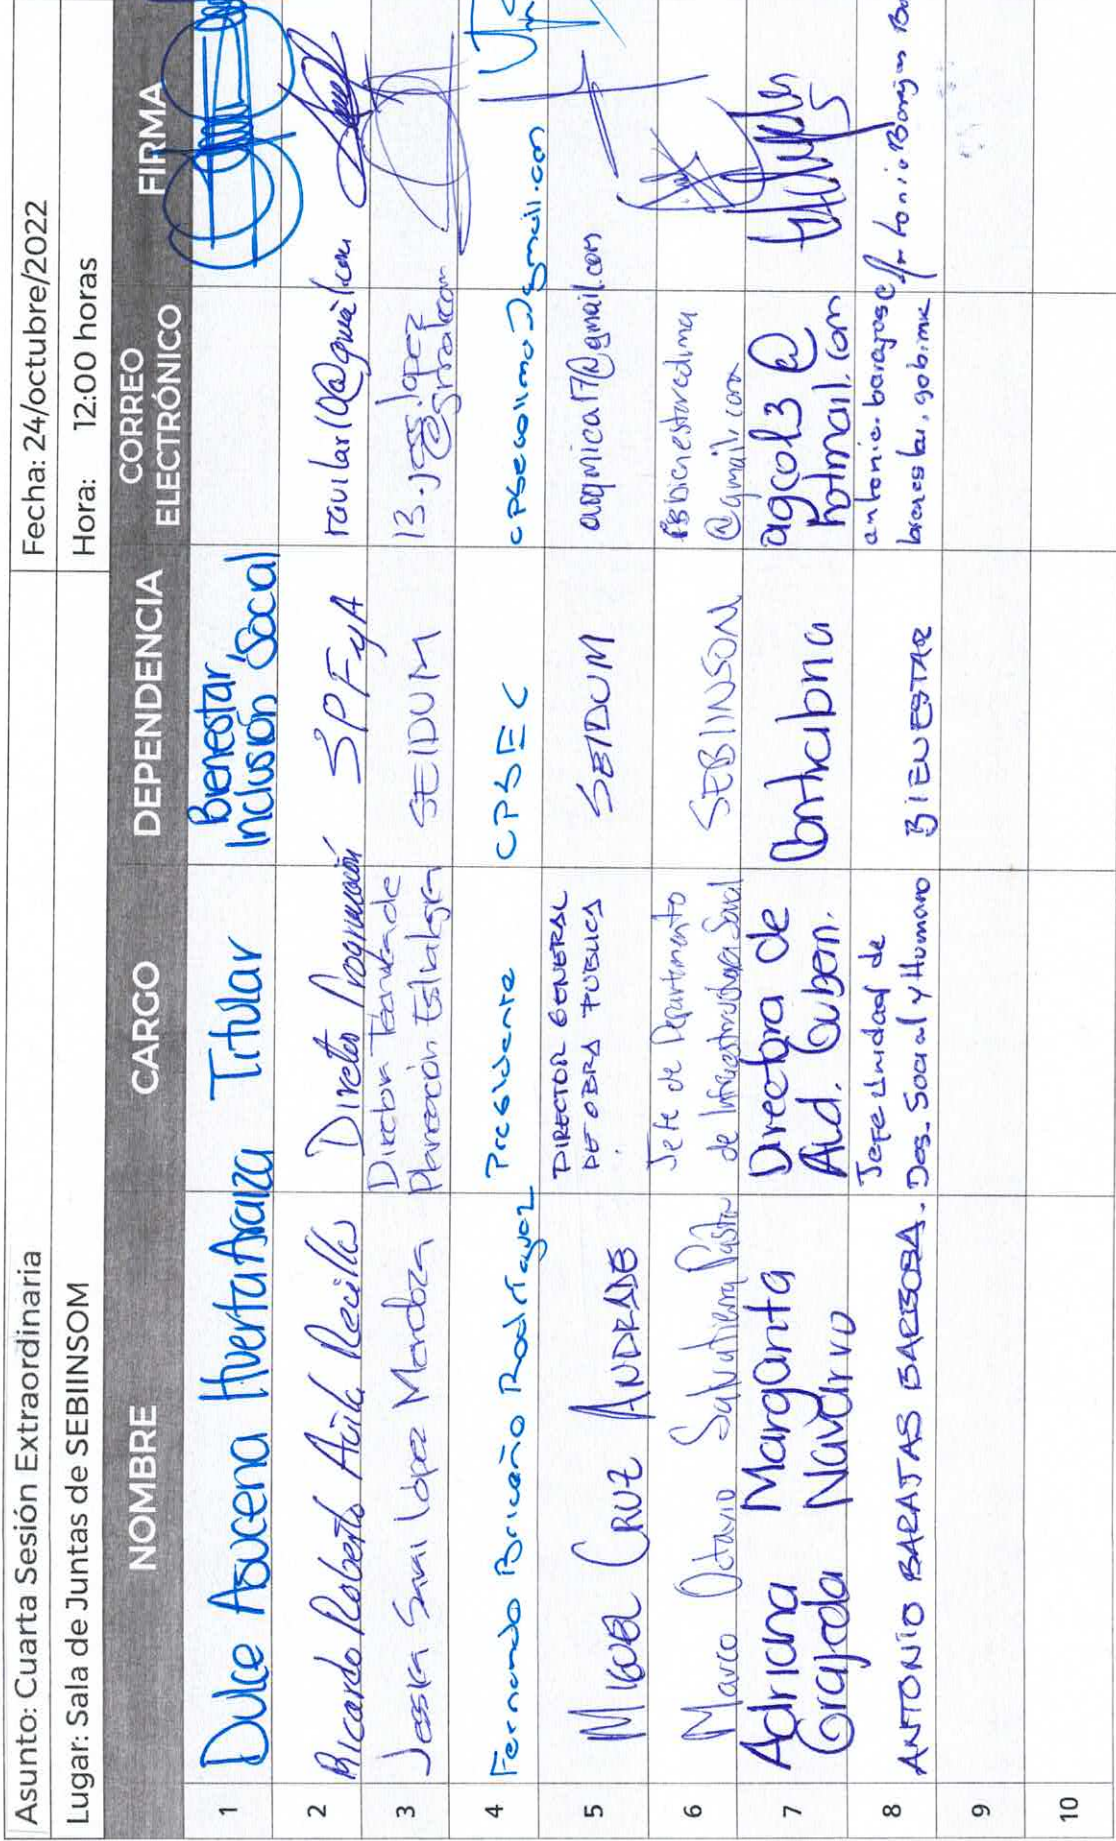 Asunto: Cuarta Sesión Extraordinaria
Fecha: 24/octubre/2022
Lugar: Sala de Juntas de SEBIINSOM
Hora: 12:00 horas
NOMBRE CARGO DEPENDENCIA CORREO ELECTRÓNICO FIRMA
1 Dulce Asucena Huerta Araiza Titular Bienestar, Inclusión Social
2 Ricardo Roberto Avila Director Programación SPFyA
3 Jessica Sarai López Mendoza Directora Técnica de
Planeación Estratégica SEIDUM 13.jess.lopez
@gmail.com
4 Fernando Briceño Rodríguez Presidente CPSEC
5 MIGUEL CRUZ ANDRADE DIRECTOR GENERAL
DE OBRA PUBLICA SEIDUM arqmica17@gmail.com
6 Marco Octavio Salvatierra Jefe de Departamento
de Infraestructura Social SEBIINSOM
@gmail.com
7 Adriana Margarita
Grageda Navarro Directora de
Aud. Gubern. Contraloria agcol3@
hotmail.com
8 ANTONIO BARAJAS BARBOSA. Jefe Unidad de
Des. Social y Humano BIENESTAR antonio.barajas@
Antonio Barajas
9
10